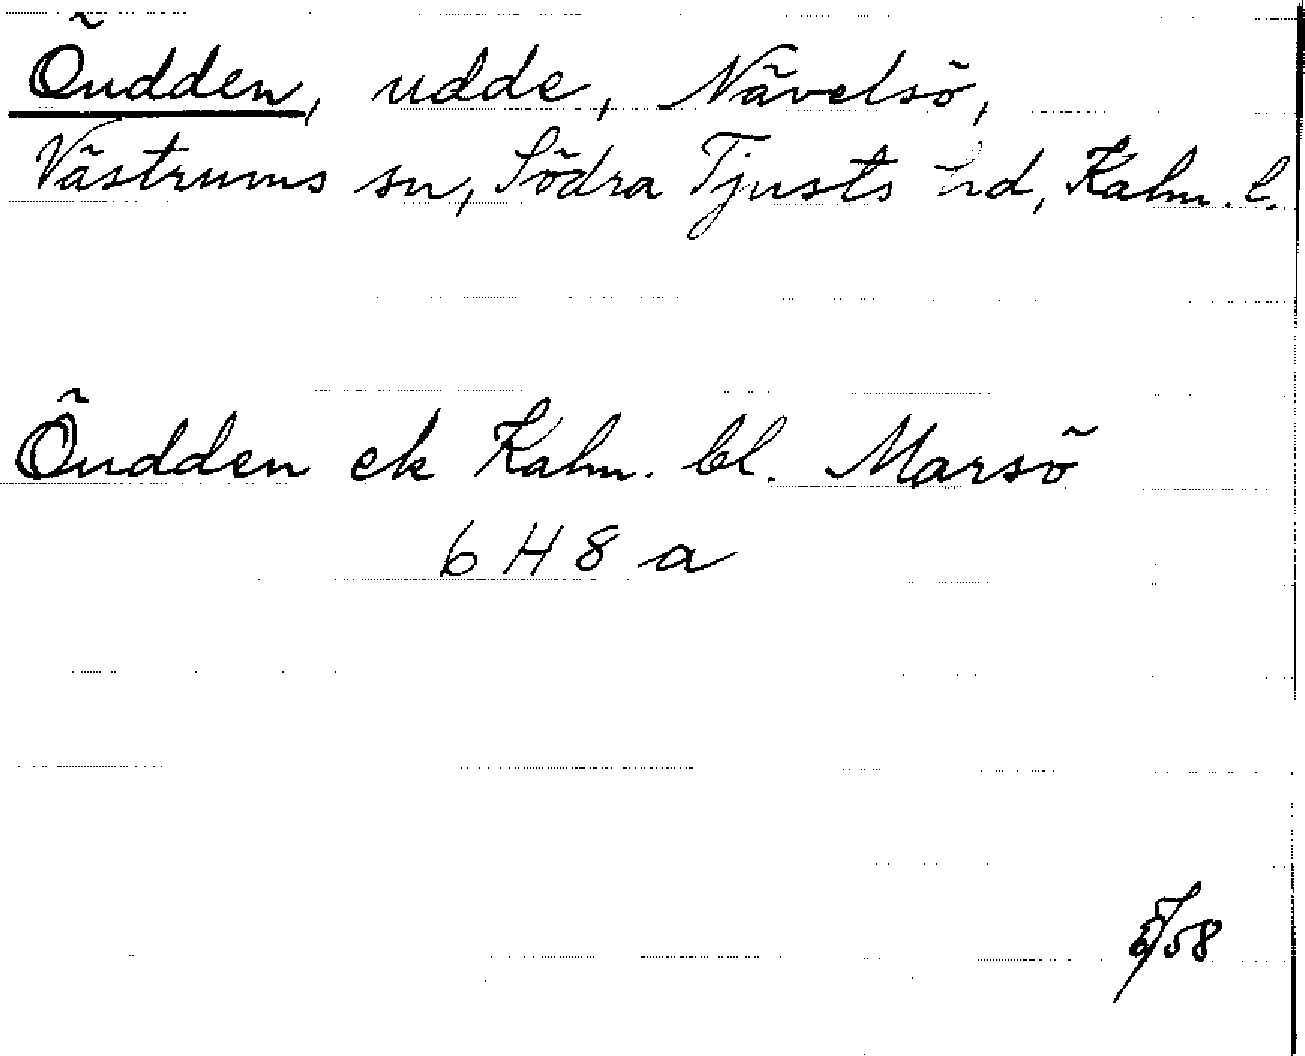 Öudden, udde, Nävelsö,
Västrums sn, Södra Tjusts hd, Kalm. l.
Öudden ek Kalm. bl. Marsö
6 H 8 a
58